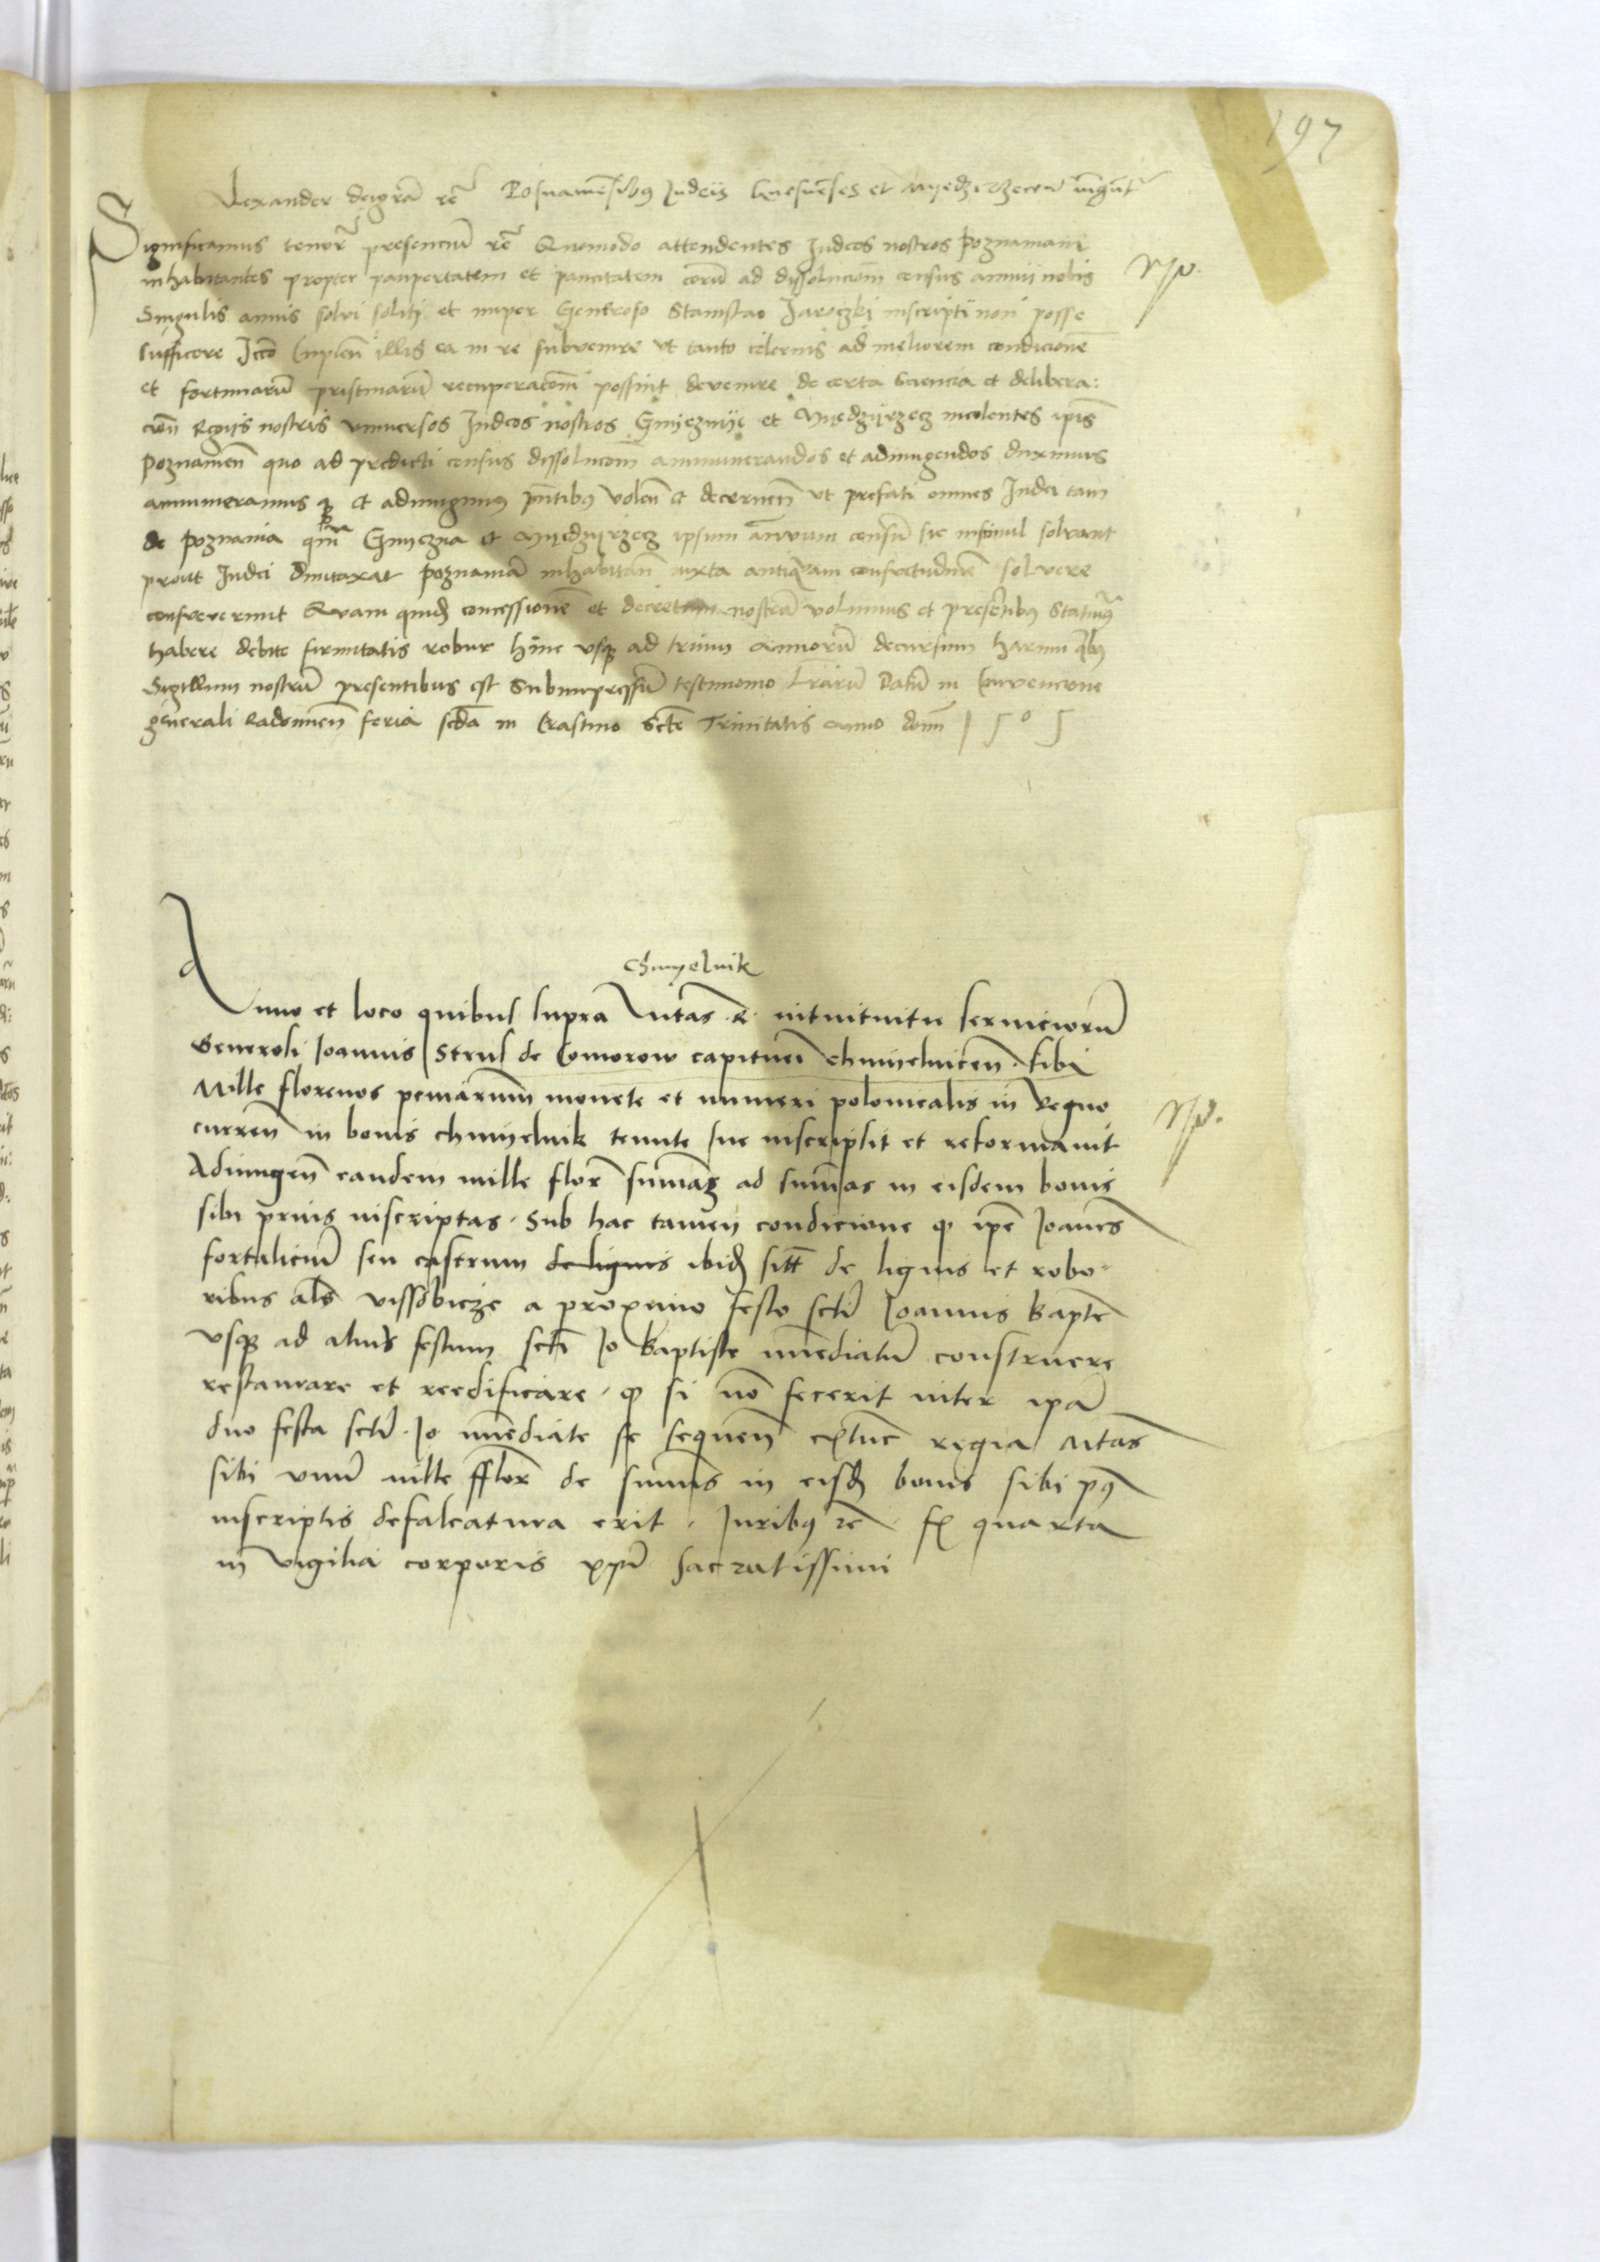 197
Alexander dei gra re Posnamensibus Iudeis Gnesnenses et Myedzirzecen iungunt
Significamus tenor presencium re Quomodo attendentes Judeos nostros Poznanam
inhabitantes propter paupertatem et paucitatem eorum ad dissolucom census annui nobis
Singulis annis solvi soliti et nuper Generoso Stanislao Jaroczki inscripti non posse
sufficere Icco Cupien illis ea in re subvenire ut tanto celerius ad meliorem condicionem
et fortunarum pristinarum recuperacom possint devenire de certa sciencia et delibera:
cion Regiis nostris universos Judeos nostros Gnyeznye et Myedzyrzecz incolentes ipis
Poznanien quo ad predicti census dissolucom annumerandos et adiungendos duximus
annumeramus que et adiungimus pntibus volen et decernen ut prefati omnes Judei tam
de Poznania qm Gnyezna et Myedzyrzecz ipsum annuum censum sic insimul solvant
prout Judei dumtaxat Poznaniam inhabitan iuxta antiquam consuetudinem solvere
consueverunt Quam quidem concessionem et decretum nostrum volumus et presentibus statuimus
habere debite firmitatis robur hinc usque ad trium annorum decursum harum quibus
Sigillum nostrum presentibus est subimpressum testimonio lrarum Datum in Convencione
generali Radomien feria scda in Crastino Scte Trinitatis anno domi 1505
Chmyelnik
Anno et loco quibus supra Mtas R. intuituitu serviciorum
Generosi Joannis Strus de Comorow capitnei Chmyelnicen. sibi
Mille florenos peniarum monete et numeri polonicalis in Regno
curren in bonis Chmyelnik tenute sue inscripsit et reformavit
Adiungen eandem mille flor summam ad summas in eisdem bonis
sibi prius inscriptas. Sub hac tamen condicione q ipe Joannes
fortalicium seu castrum de lignis ibidem sitt de lignis et robo=
ribus als vissdbicze a proximo festo scti Joannis Bapte
usque ad aliud festum scti Jo Baptiste immediatum construere
restaurare et reedificare. q si non fecerit inter ipa
duo festa scti. Jo immediate se sequen extunc regia Mtas
sibi unum mille fflor de summis in eisdem bonis sibi prius
inscriptis defalcatura erit. Juribus re. f quarta
in vigilia corporis xpi sacratissimi